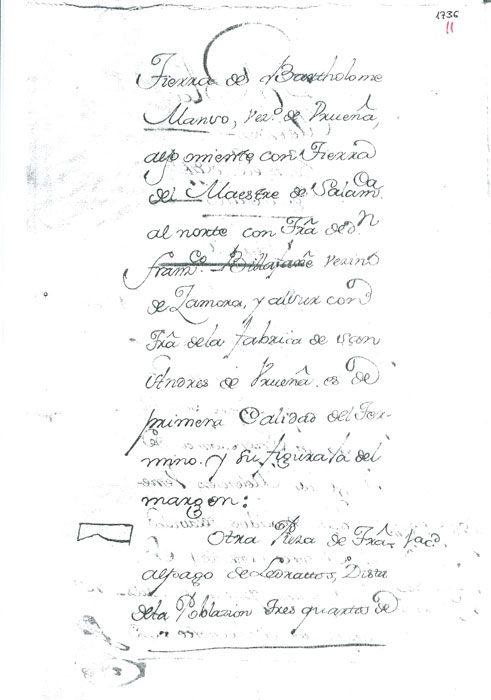 1736
11
Tierra de Bartholome
Manso, vez.º de Urueña,
al oriente con Tierra
del Maestre de Salam.ca
al norte con Trâ de Dn
Fran.co Billafañe vezino
de Zamora, y al sur con
Trâ de la fabrica de San
Andres de Urueña. es de
primera Calidad del Ter-
mino. y su figura la del
margen:
Otra Pieza de Trâ,
al pago de Dista
de la Poblazion tres quartos de